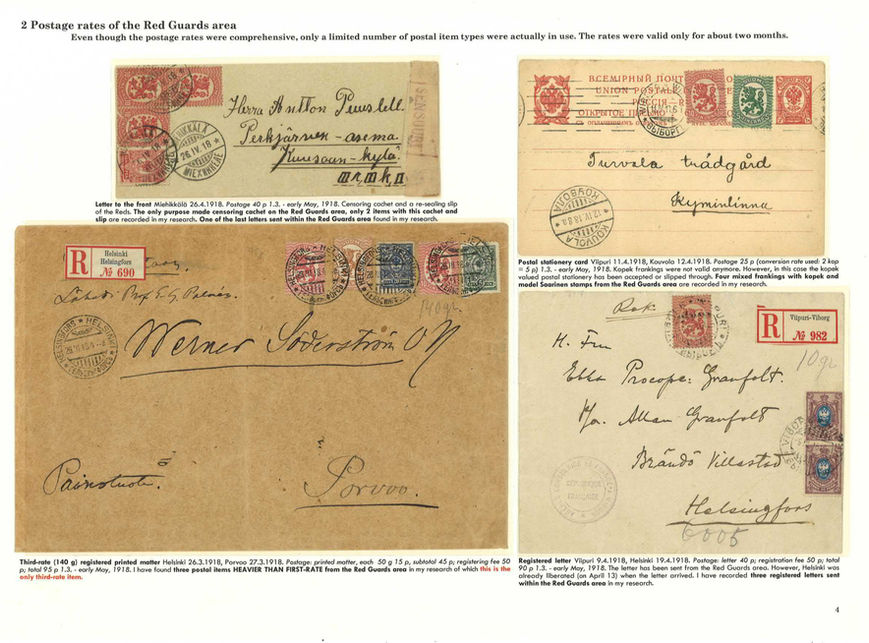 2 Postage rates of the Red Guards area
Even though the postage rates were comprehensive, only a limited number of postal item types were actually in use. The rates were valid only for about two months.
Herra Anton Puuslell.
Perkjärven - asema
Kuusaan-kylä.
26.IV.18
Letter to the front Miehikkölä 26.4.1918. Postage 40 p 1.3. - early May, 1918. Censoring cachet and a re-sealing slip
of the Reds. The only purpose made censoring cachet on the Red Guards area, only 2 items with this cachet and
slip are recorded in my research. One of the last letters sent within the Red Guards area found in my research.
ВСЕМІРНЫЙ ПОЧТ
UNION POSTAL
РОССІЯ - R
ОТКРЫТОЕ
Turvala trädgård
Kyminlinna
КОУВОЛА
12.IV.18.8a
KOUVOLA
Postal stationery card Viipuri 11.4.1918, Kouvola 12.4.1918. Postage 25 p (conversion rate used: 2 kop
= 5 p) 1.3. - early May, 1918. Kopek frankings were not valid anymore. However, in this case the kopek
valued postal stationery has been accepted or slipped through. Four mixed frankings with kopek and
model Saarinen stamps from the Red Guards area are recorded in my research.
R
Helsinki
Helsingfors
№ 690
140 gr
HELSINGFORS HELSINKI
Werner Söderström O Y
Painotuote.
Porvoo.
Third-rate (140 g) registered printed matter Helsinki 26.3.1918, Porvoo 27.3.1918. Postage: printed matter, each 50 g 15 p, subtotal 45 p; registering fee 50
p; total 95 p 1.3. - early May, 1918. I have found three postal items HEAVIER THAN FIRST-RATE from the Red Guards area in my research of which this is the
only third-rate item.
Rek.
R
Viipuri-Viborg
№ 982
10 gr
H. Fru
Ebba Procopé-Granfelt.
Allan Granfelt
Brändö Villastad
Helsingfors
6005
REPUBLIQUE
FRANÇAISE
Registered letter Viipuri 9.4.1918, Helsinki 19.4.1918. Postage: letter 40 p; registration fee 50 p; total
90 p 1.3. - early May, 1918. The letter has been sent from the Red Guards area. However, Helsinki was
already liberated (on April 13) when the letter arrived. I have recorded three registered letters sent
within the Red Guards area in my research.
4